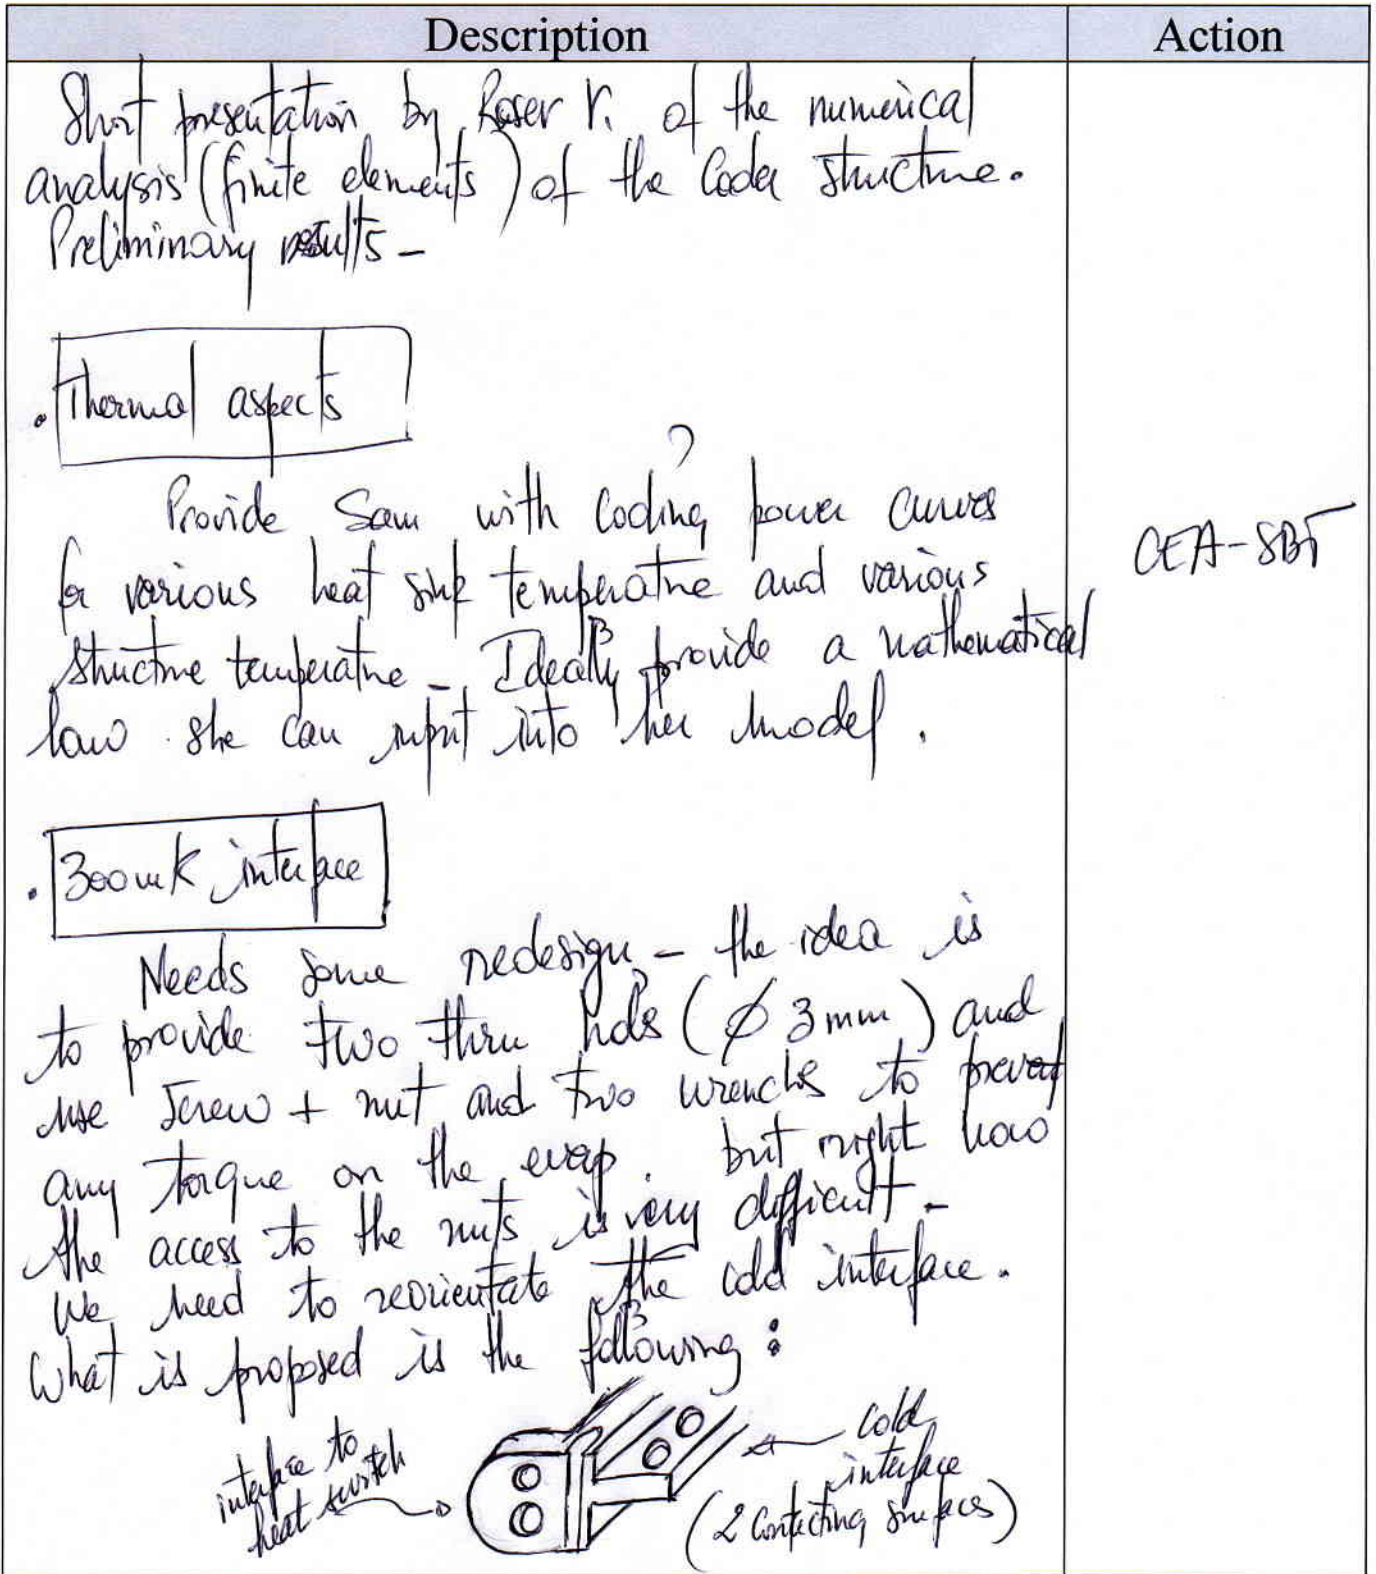 Description
Action
Short presentation by Roser V. of the numerical
analysis (finite elements) of the Cooler structure.
Preliminary results -
. Thermal aspects
Provide Sam with Cooling power curves
for various heat sink temperature and various
structure temperature - Ideally provide a mathematical
law she can input into her model.
CEA-SBT
. 300 mK interface
Needs some redesign - the idea is
to provide two thru holes (Ø 3 mm) and
use screw + nut and two wrenches to prevent
any torque on the evap. but right now
the access to the nuts is very difficult -
We need to reorientate the cold interface.
What is proposed is the following :
interface to
heat switch
cold
interface
(2 contacting surfaces)